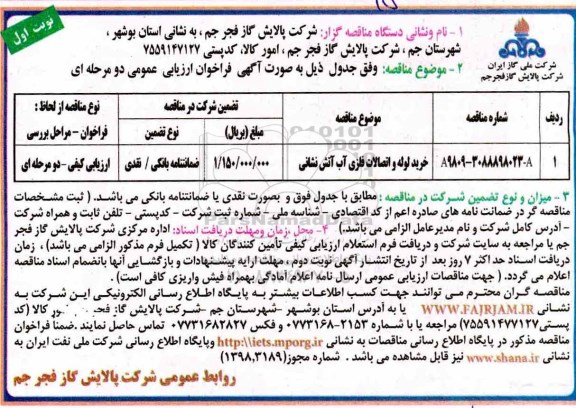 نوبت اول
شرکت ملی گاز ایران
شرکت پالایش گاز فجرجم
۱ - نام ونشانی دستگاه مناقصه گزار: شرکت پالایش گاز فجر جم ، به نشانی استان بوشهر ،
شهرستان جم ، شرکت پالایش گاز فجر جم ، امور کالا، کدپستی ۷۵۵۹۱۴۷۱۲۷
۲ - موضوع مناقصه: وفق جدول ذیل به صورت آگهی فراخوان ارزیابی عمومی دو مرحله ای
ردیف شماره مناقصه موضوع مناقصه تضمین شرکت در مناقصه نوع مناقصه از لحاظ :
مبلغ (بریال) نوع تضمین فراخوان – مراحل بررسی
۱ A۹۸۰۹-۳۰۸۸۸۹۸۰۲۳-A خرید لوله و اتصالات فلزی آب آتش نشانی ۱/۱۵۰/۰۰۰/۰۰۰ ضمانتنامه بانکی / نقدی ارزیابی کیفی – دو مرحله ای
۳ - میزان و نوع تضمین شرکت در مناقصه : مطابق با جدول فوق و بصورت نقدی یا ضمانتنامه بانکی می باشد. ( ثبت مشخصات
مناقصه گر در ضمانت نامه های صادره اعم از کد اقتصادی – شناسه ملی – شماره ثبت شرکت – کدپستی – تلفن ثابت و همراه شرکت
– آدرس کامل شرکت و نام مدیرعامل الزامی می باشد.) ۴- محل ،زمان ومهلت دریافت اسناد: اداره مرکزی شرکت پالایش گاز فجر
جم یا مراجعه به سایت شرکت و دریافت فرم استعلام ارزیابی کیفی تأمین کنندگان کالا ( تکمیل فرم مذکور الزامی می باشد) ، زمان
دریافت اسناد حد اکثر ۷ روز بعد از تاریخ انتشار آگهی نوبت دوم ، مهلت ارایه پیشنهادات و بازگشایی آنها بانضمام اسناد مناقصه
اعلام می گردد. ( جهت مناقصات ارزیابی عمومی ارسال نامه اعلام آمادگی بهمراه فیش واریزی کافی است ) .
مناقصه گران محترم می توانند جهت کسب اطلاعات بیشتر به پایگاه اطلاع رسانی الکترونیکی این شرکت به
نشانی WWW.FAJRJAM.IR یا به آدرس استان بوشهر –شهرستان جم –شرکت پالایش گاز فجر جم – امور کالا (کد
پستی۷۵۵۹۱۴۷۷۱۲۷) مراجعه یا با شماره ۲۱۵۳-۰۷۷۳۱۶۸ و فکس ۰۷۷۳۱۶۸۲۸۲۷ تماس حاصل نمایند .ضمنا فراخوان
مناقصه مذکور در پایگاه اطلاع رسانی مناقصات به نشانی http:\\iets.mporg.ir وپایگاه اطلاع رسانی شرکت ملی نفت ایران به
نشانی www.shana.ir نیز قابل مشاهده می باشد . شماره مجوز(۱۳۹۸,۳۱۸۹)
روابط عمومی شرکت پالایش گاز فجر جم